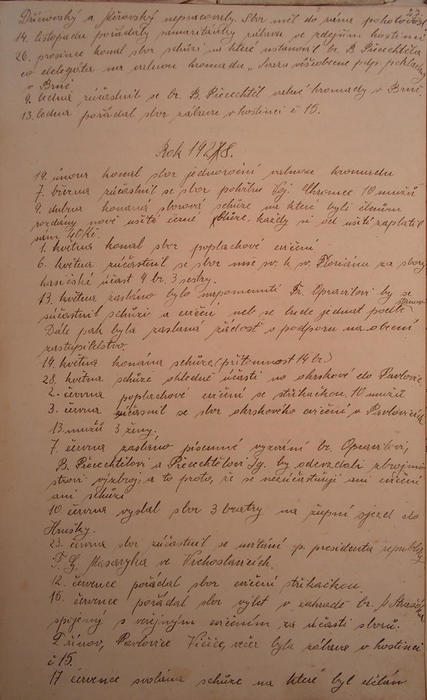 Dřínovský a Měrovský nepracovaly. Sbor měl do rána pohotovost
14. listopadu pořádaly samaritánky zábavu ve zdejším hostinci
26. prosince konal sbor schůzi na které ustanovil br. B. Přecechtěla
co delegáta na valnou hromadu „Svazu všeobecné podp. pokladny
v Brně.
9. ledna zúčastnil se br. B. Přecechtěl valné hromady v Brně.
13. ledna pořádal sbor zábavu v hostinci č 15.
Rok 1928.
19. února konal sbor jednoroční valnou hromadu
7. března zúčastnil se sbor pohřbu 10 mužů
9. dubna konaná sborová schůze na které byli členům
rozdány nově ušité černé blůze, každý si od ušití zaplatil
40 Kč.
1. května konal sbor poplachové cvičení
6. května zúčastnil se sbor mše sv. k sv. Floriánu za sbory
hanácké účast 4 br. 3 sestry.
13. května zasláno bylo napomenutí Fr. Opravilovi by se
súčastnil schůzí a cvičení neb se bude jednat podle stanov
Dále pak byla zaslaná žádost o podporu na obecní
zastupitelstvo.
19. května konána schůze. (přítomnost 14 br.)
28. května schůze ohledně účasti na okrskové do Pavlovic
2. června poplachové cvičení se stříkačkou. 10 mužů
3. června zúčasnil se sbor okrskového cvičení v Pavlovicích
13 mužů 3 ženy.
7. června zasláno písemné vyzvání br. Opravilovi,
B. Přecechtělovi a Přecechtělovi Ig. by odevzdali
výzbroj a to proto, že se nezúčastňují ani cvičení
ani schůzí
10 června vyslal sbor 3 bratry na župní sjezd do
Hrušky.
23. června sbor zúčastnil se uvítání p. presidenta republiky
T. G. Masaryka ve Vrchoslavicích.
12. července pořádal sbor cvičení stříkačkou.
15. července pořádal sbor výlet v zahradě br.
spojený s veřejným cvičením za účasti sborů
Dřínov, Pavlovice Vičice, večer byla zábava v hostinci
č 15.
17 července svolána schůze na které byl dělán